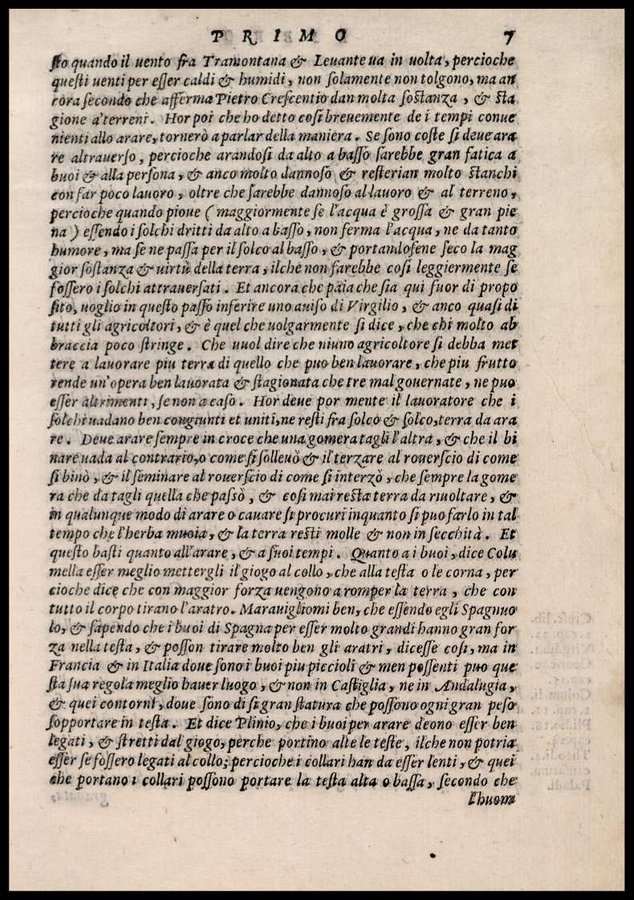 PRIMO 7
sto quando il uento fra Tramontana & Leuante ua in uolta, percioche
questi uenti per esser caldi & humidi, non solamente non tolgono, ma an
cora secondo che afferma Pietro Crescentio dan molta sostanza, & sta
gione a'terreni. Hor poi che ho detto cosi breuemente de i tempi conue
nienti allo arare, tornerò a parlar della maniera. Se sono coste si deue ara
re altrauerso, percioche arandosi da alto a basso sarebbe gran fatica a
buoi & alla persona, & anco molto dannoso & resterian molto stanchi
con far poco lauoro, oltre che sarebbe dannoso al lauoro & al terreno,
percioche quando pioue (maggiormente se l'acqua è grossa & gran pie
na) essendo i solchi dritti da alto a basso, non ferma l'acqua, ne da tanto
humore, ma se ne passa per il solco al basso, & portandosene seco la mag
gior sostanza & uirtù della terra, ilche non farebbe cosi leggiermente se
fossero i solchi attrauersati. Et ancora che paia che sia qui fuor di propo
sito, uoglio in questo passo inferire uno auiso di Virgilio, & anco quasi di
tutti gli agricoltori, & è quel che uolgarmente si dice, che chi molto ab
braccia poco stringe. Che uuol dire che niuno agricoltore si debba met
tere a lauorare piu terra di quello che puo ben lauorare, che piu frutto
rende un'opera ben lauorata & stagionata che tre mal gouernate, ne puo
esser altrimenti, se non a caso. Hor deue por mente il lauoratore che i
solchi uadano ben congiunti et uniti, ne resti fra solco & solco, terra da ara
re. Deue arare sempre in croce che una gomera tagli l'altra, & che il bi
nare uada al contrario, o come si solleuò & il terzare al rouerscio di come
si binò, & il seminare al rouerscio di come si interzò, che sempre la gome
ra che da tagli quella che passò, & cosi mai resta terra da riuoltare, &
in qualunque modo di arare o cauare si procuri inquanto si puo farlo in tal
tempo che l'herba muoia, & la terra resti molle & non in secchità. Et
questo basti quanto all'arare, & a suoi tempi. Quanto a i buoi, dice Colu
mella esser meglio mettergli il giogo al collo, che alla testa o le corna, per
cioche dice che con maggior forza uengono a romper la terra, che con
tutto il corpo tirano l'aratro. Marauigliomi ben, che essendo egli Spagnuo
lo, & sapendo che i buoi di Spagna per esser molto grandi hanno gran for
za nella testa, & posson tirare molto ben gli aratri, dicesse cosi, ma in
Francia & in Italia doue sono i buoi piu piccioli & men possenti puo que
sta sua regola meglio hauer luogo, & non in Castiglia, ne in Andalugia,
& quei contorni, doue sono di si gran statura che possono ogni gran peso
sopportare in testa. Et dice Plinio, che i buoi per arare deono esser ben
legati, & stretti dal giogo, perche portino alte le teste, ilche non potria
esser se fossero legati al collo; percioche i collari han da esser lenti, & quei
che portano i collari possono portare la testa alta o bassa, secondo che
l'huom